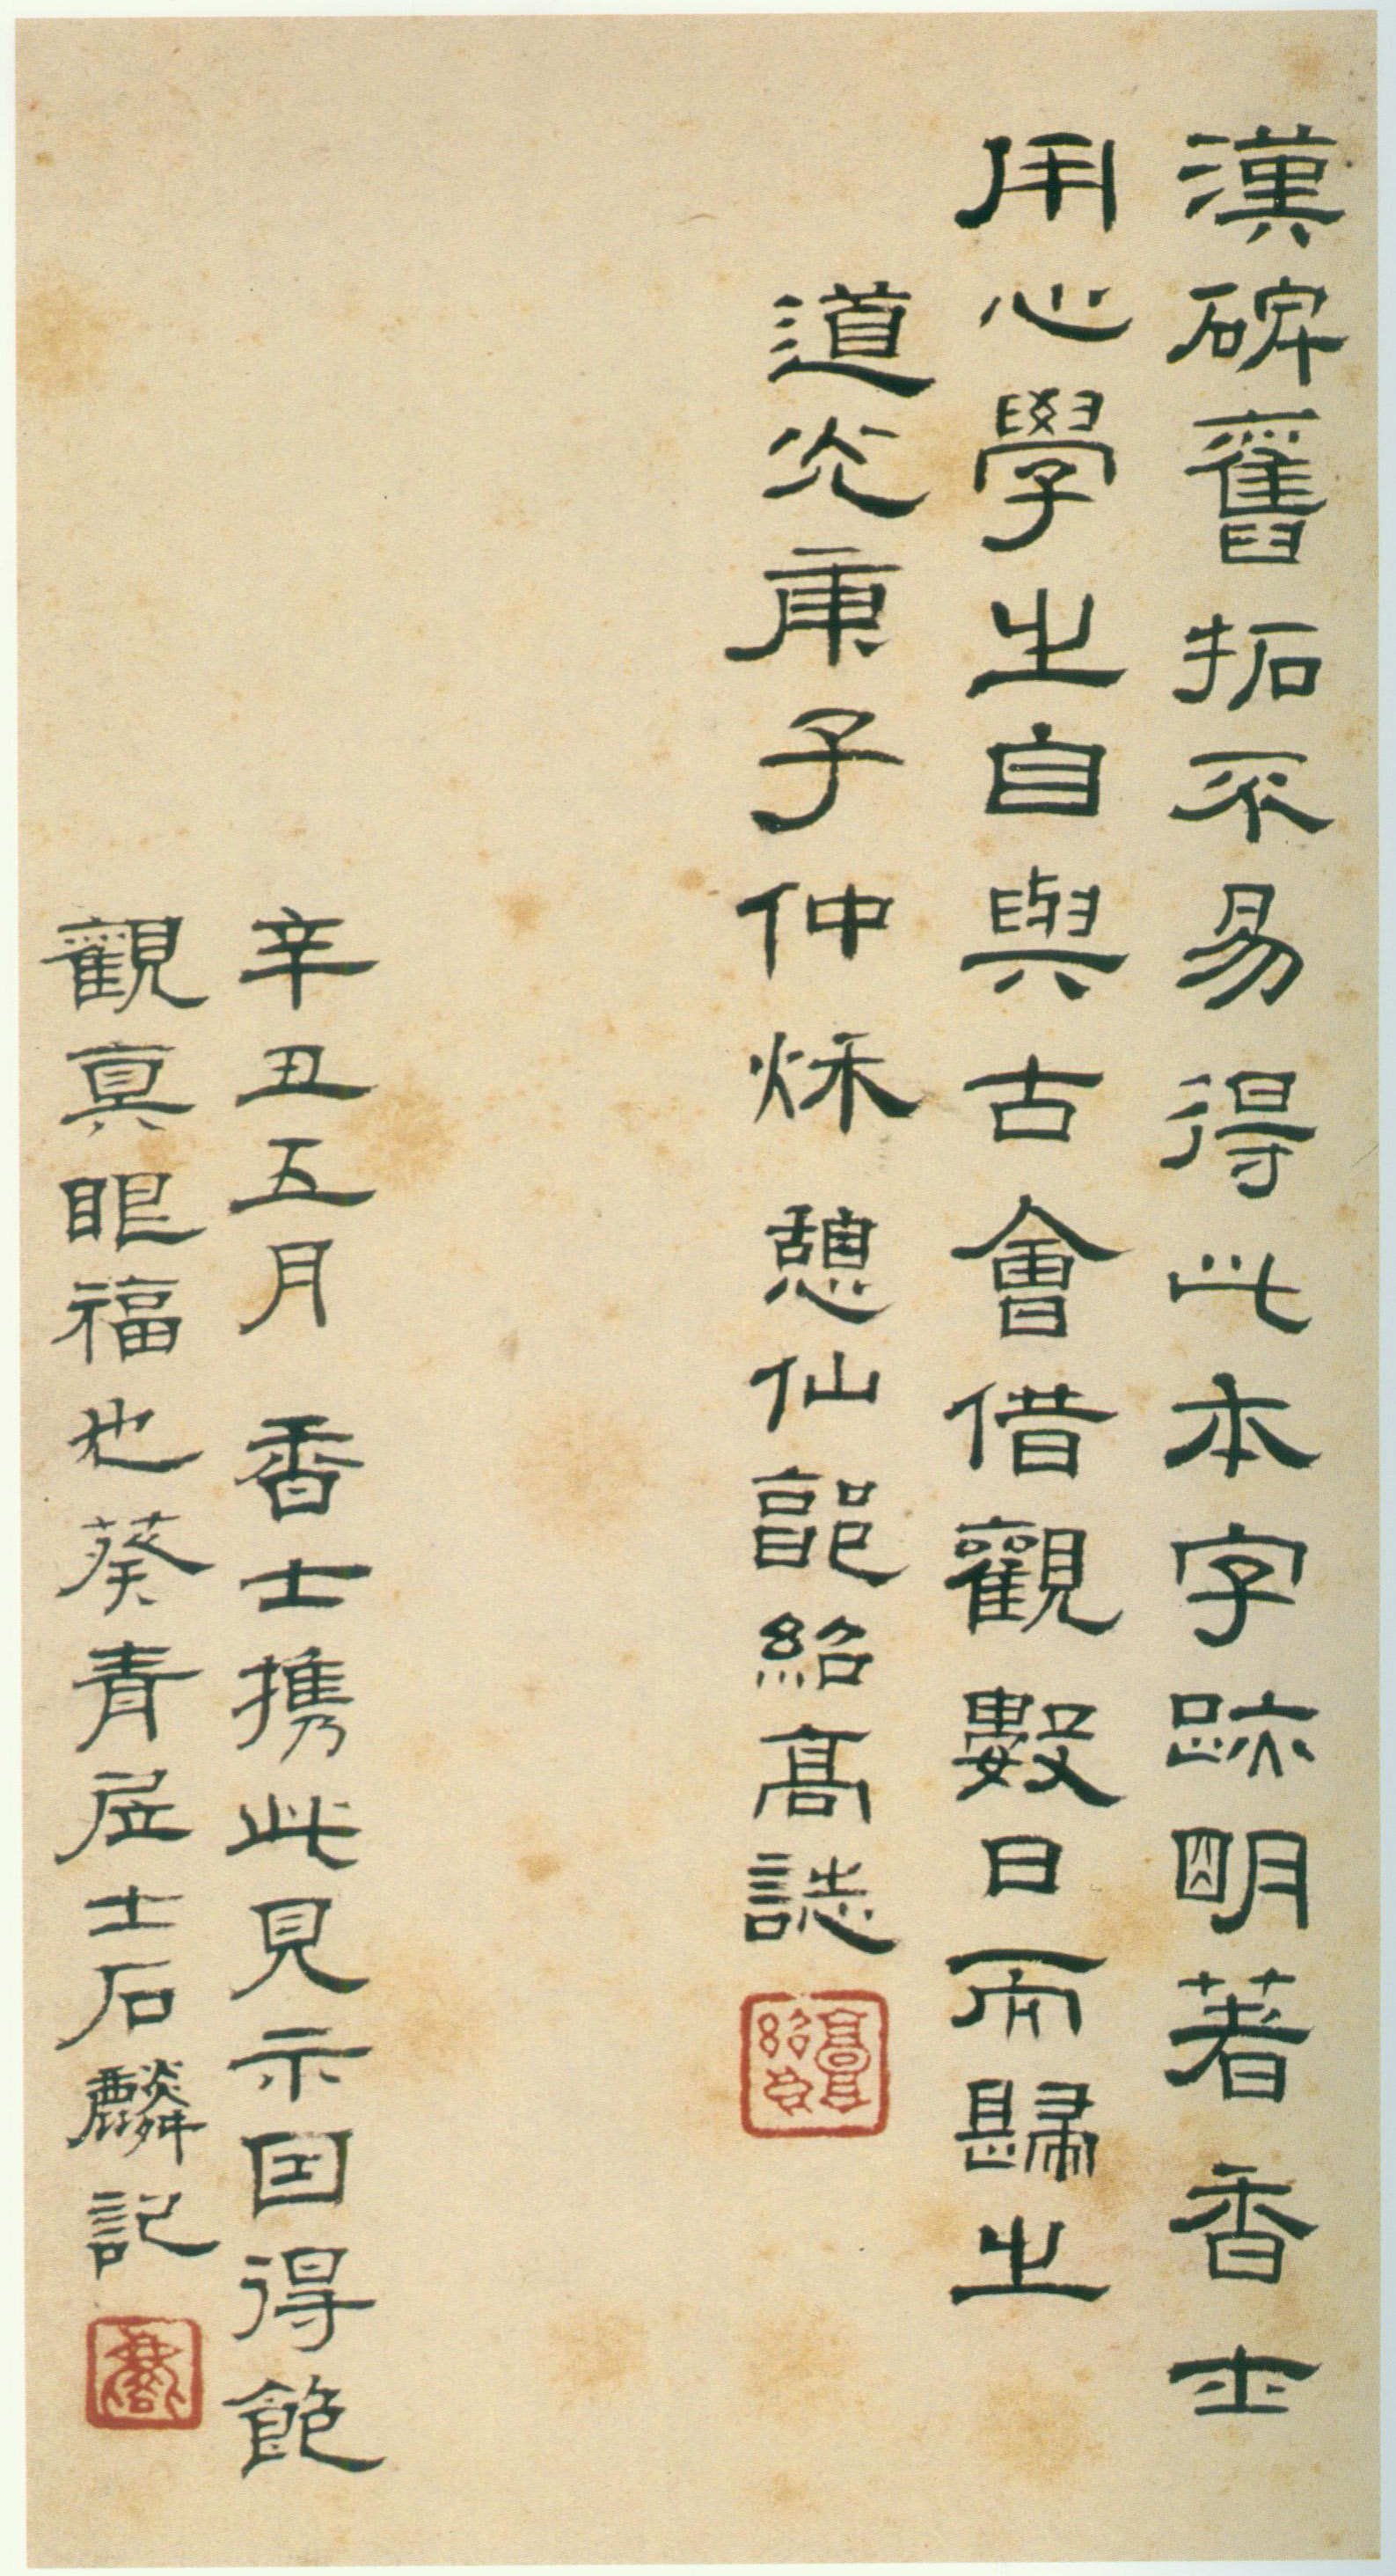 漢碑舊拓不易得此本字跡明著香士
用心學之自與古會借觀數日而歸之
道光庚子仲秌憩仙郭紹高誌
辛丑五月香士携此見示因得飽
觀真眼福也葵青居士石麟記